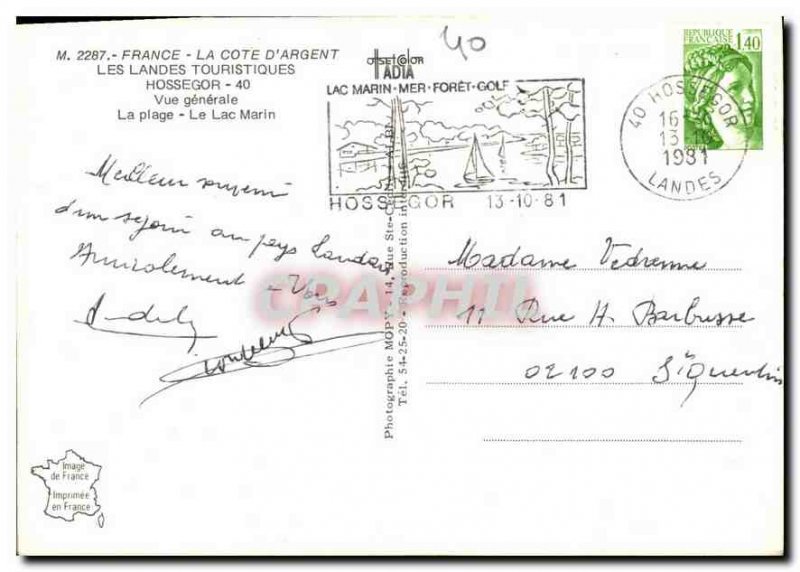 M. 2287.- FRANCE - LA COTE D'ARGENT
LES LANDES TOURISTIQUES
HOSSEGOR - 40
Vue générale
La plage - Le Lac Marin
40
OFFSET COLOR
IADIA
LAC MARIN·MER·FORÊT·GOLF
HOSSEGOR 13-10-81
REPUBLIQUE
FRANÇAISE
1,40
40 HOSSEGOR
16
13
1981
LANDES
Meilleur souvenir
d'un séjour au pays landais
Amicalement - Vous
Madame Vedrenne
11 Rue H. Barbusse
02100 St Quentin
Photographie MOPY - 14, Rue Ste-Cécile - ALBI
Tél. 54-25-20 - Reproduction interdite
CPAPHIL
Image
de France
Imprimée
en France